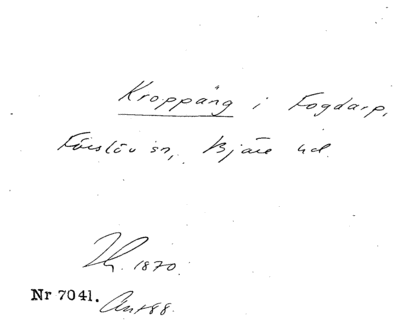 Kroppäng i Fogdarp,
Förslöv sn, Bjäre hd.
1870
Nr 7041.